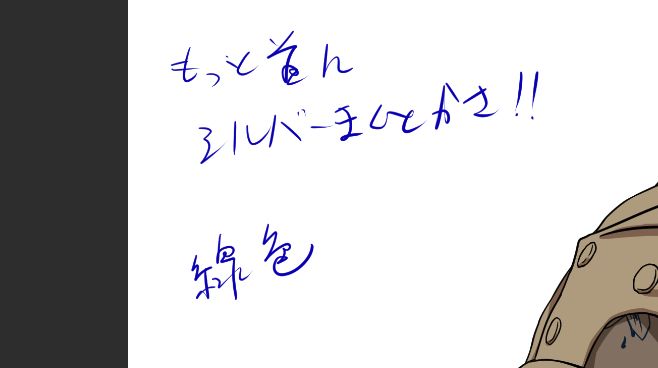 もっと首ん
シルバーまくとかさ!!
緑色